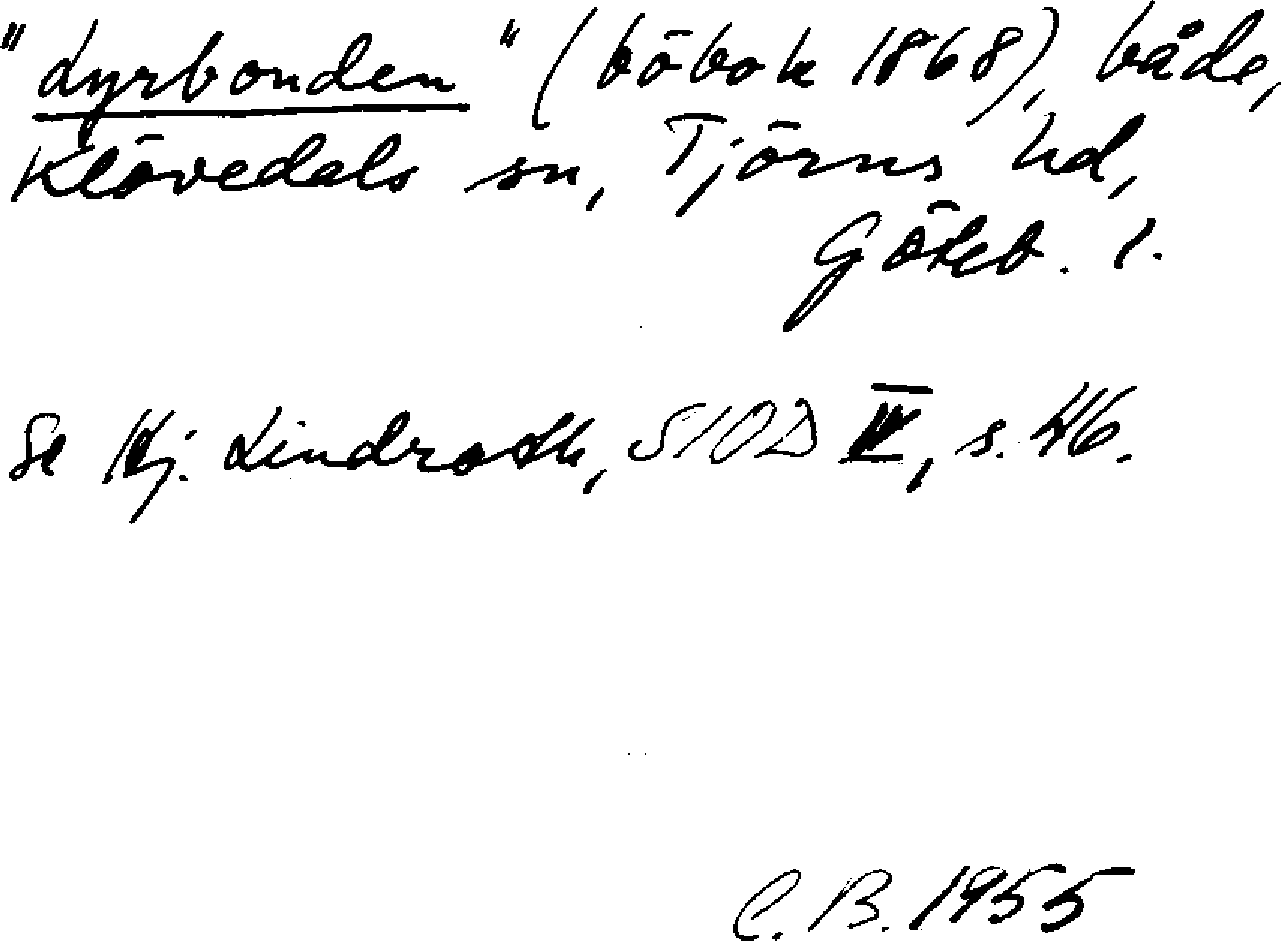 "Lyrbonden" (böbok 1868), både,
Klövedals sn, Tjörns hd,
Göteb. l.
Se Hj. Lindroth, SIOD IV, s. 46.
C. B. 1955